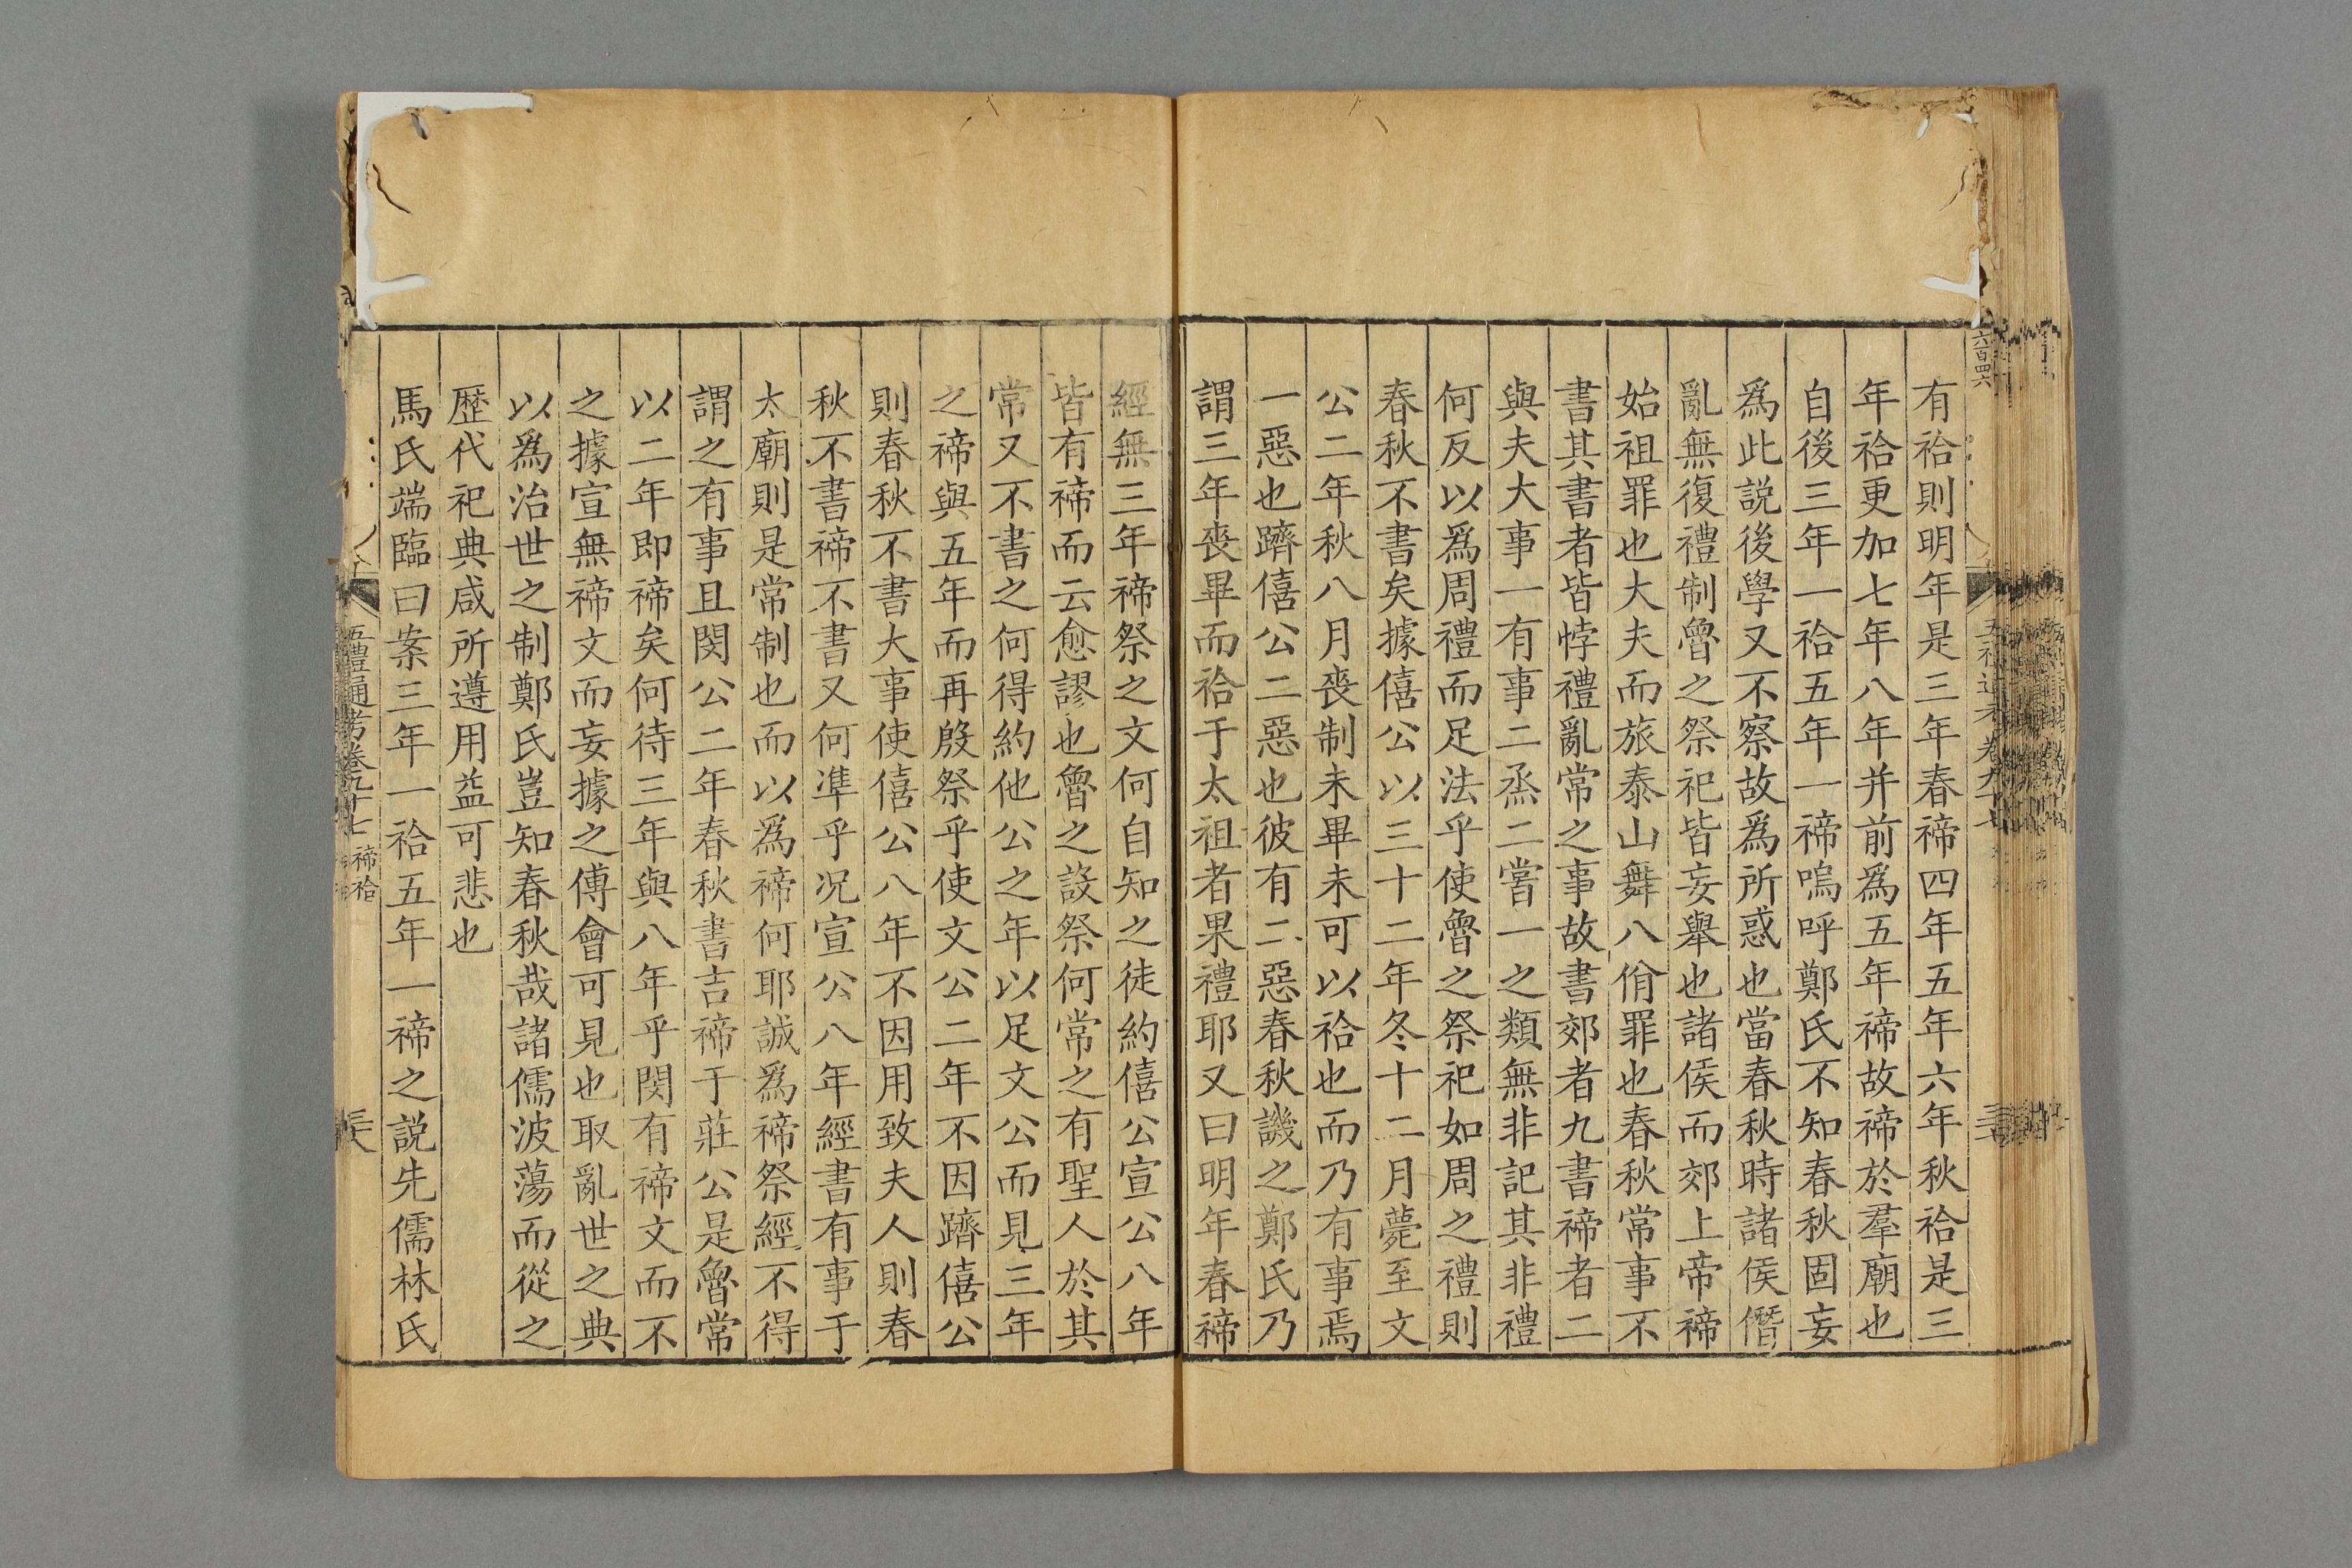 有祫則明年是三年春禘四年五年六年秋祫是三
年祫更加七年八年并前爲五年禘故禘於羣廟也
自後三年一祫五年一禘嗚呼鄭氏不知春秋固妄
爲此説後學又不察故爲所惑也當春秋時諸侯僭
亂無復禮制魯之祭祀皆妄舉也諸侯而郊上帝禘
始祖罪也大夫而旅泰山舞八佾罪也春秋常事不
書其書者皆悖禮亂常之事故書郊者九書禘者二
與夫大事一有事二烝二嘗一之類無非記其非禮
何反以爲周禮而足法乎使魯之祭祀如周之禮則
春秋不書矣據僖公以三十二年冬十二月薨至文
公二年秋八月喪制未畢未可以祫也而乃有事焉
一惡也躋僖公二惡也彼有二惡春秋譏之鄭氏乃
謂三年喪畢而祫于太祖者果禮耶又曰明年春禘
經無三年禘祭之文何自知之徒約僖公宣公八年
皆有禘而云愈謬也魯之設祭何常之有聖人於其
常又不書之何得約他公之年以足文公而見三年
之禘與五年而再殷祭乎使文公二年不因躋僖公
則春秋不書大事使僖公八年不因用致夫人則春
秋不書禘不書又何準乎况宣公八年經書有事于
太廟則是常制也而以爲禘何耶誠爲禘祭經不得
謂之有事且閔公二年春秋書吉禘于莊公是魯常
以二年即禘矣何待三年與八年乎閔有禘文而不
之據宣無禘文而妄據之傅會可見也取亂世之典
以爲治世之制鄭氏豈知春秋哉諸儒波蕩而從之
歷代祀典咸所遵用益可悲也
馬氏端臨曰案三年一祫五年一禘之説先儒林氏
五禮通考卷九十七 禘祫
六百四六